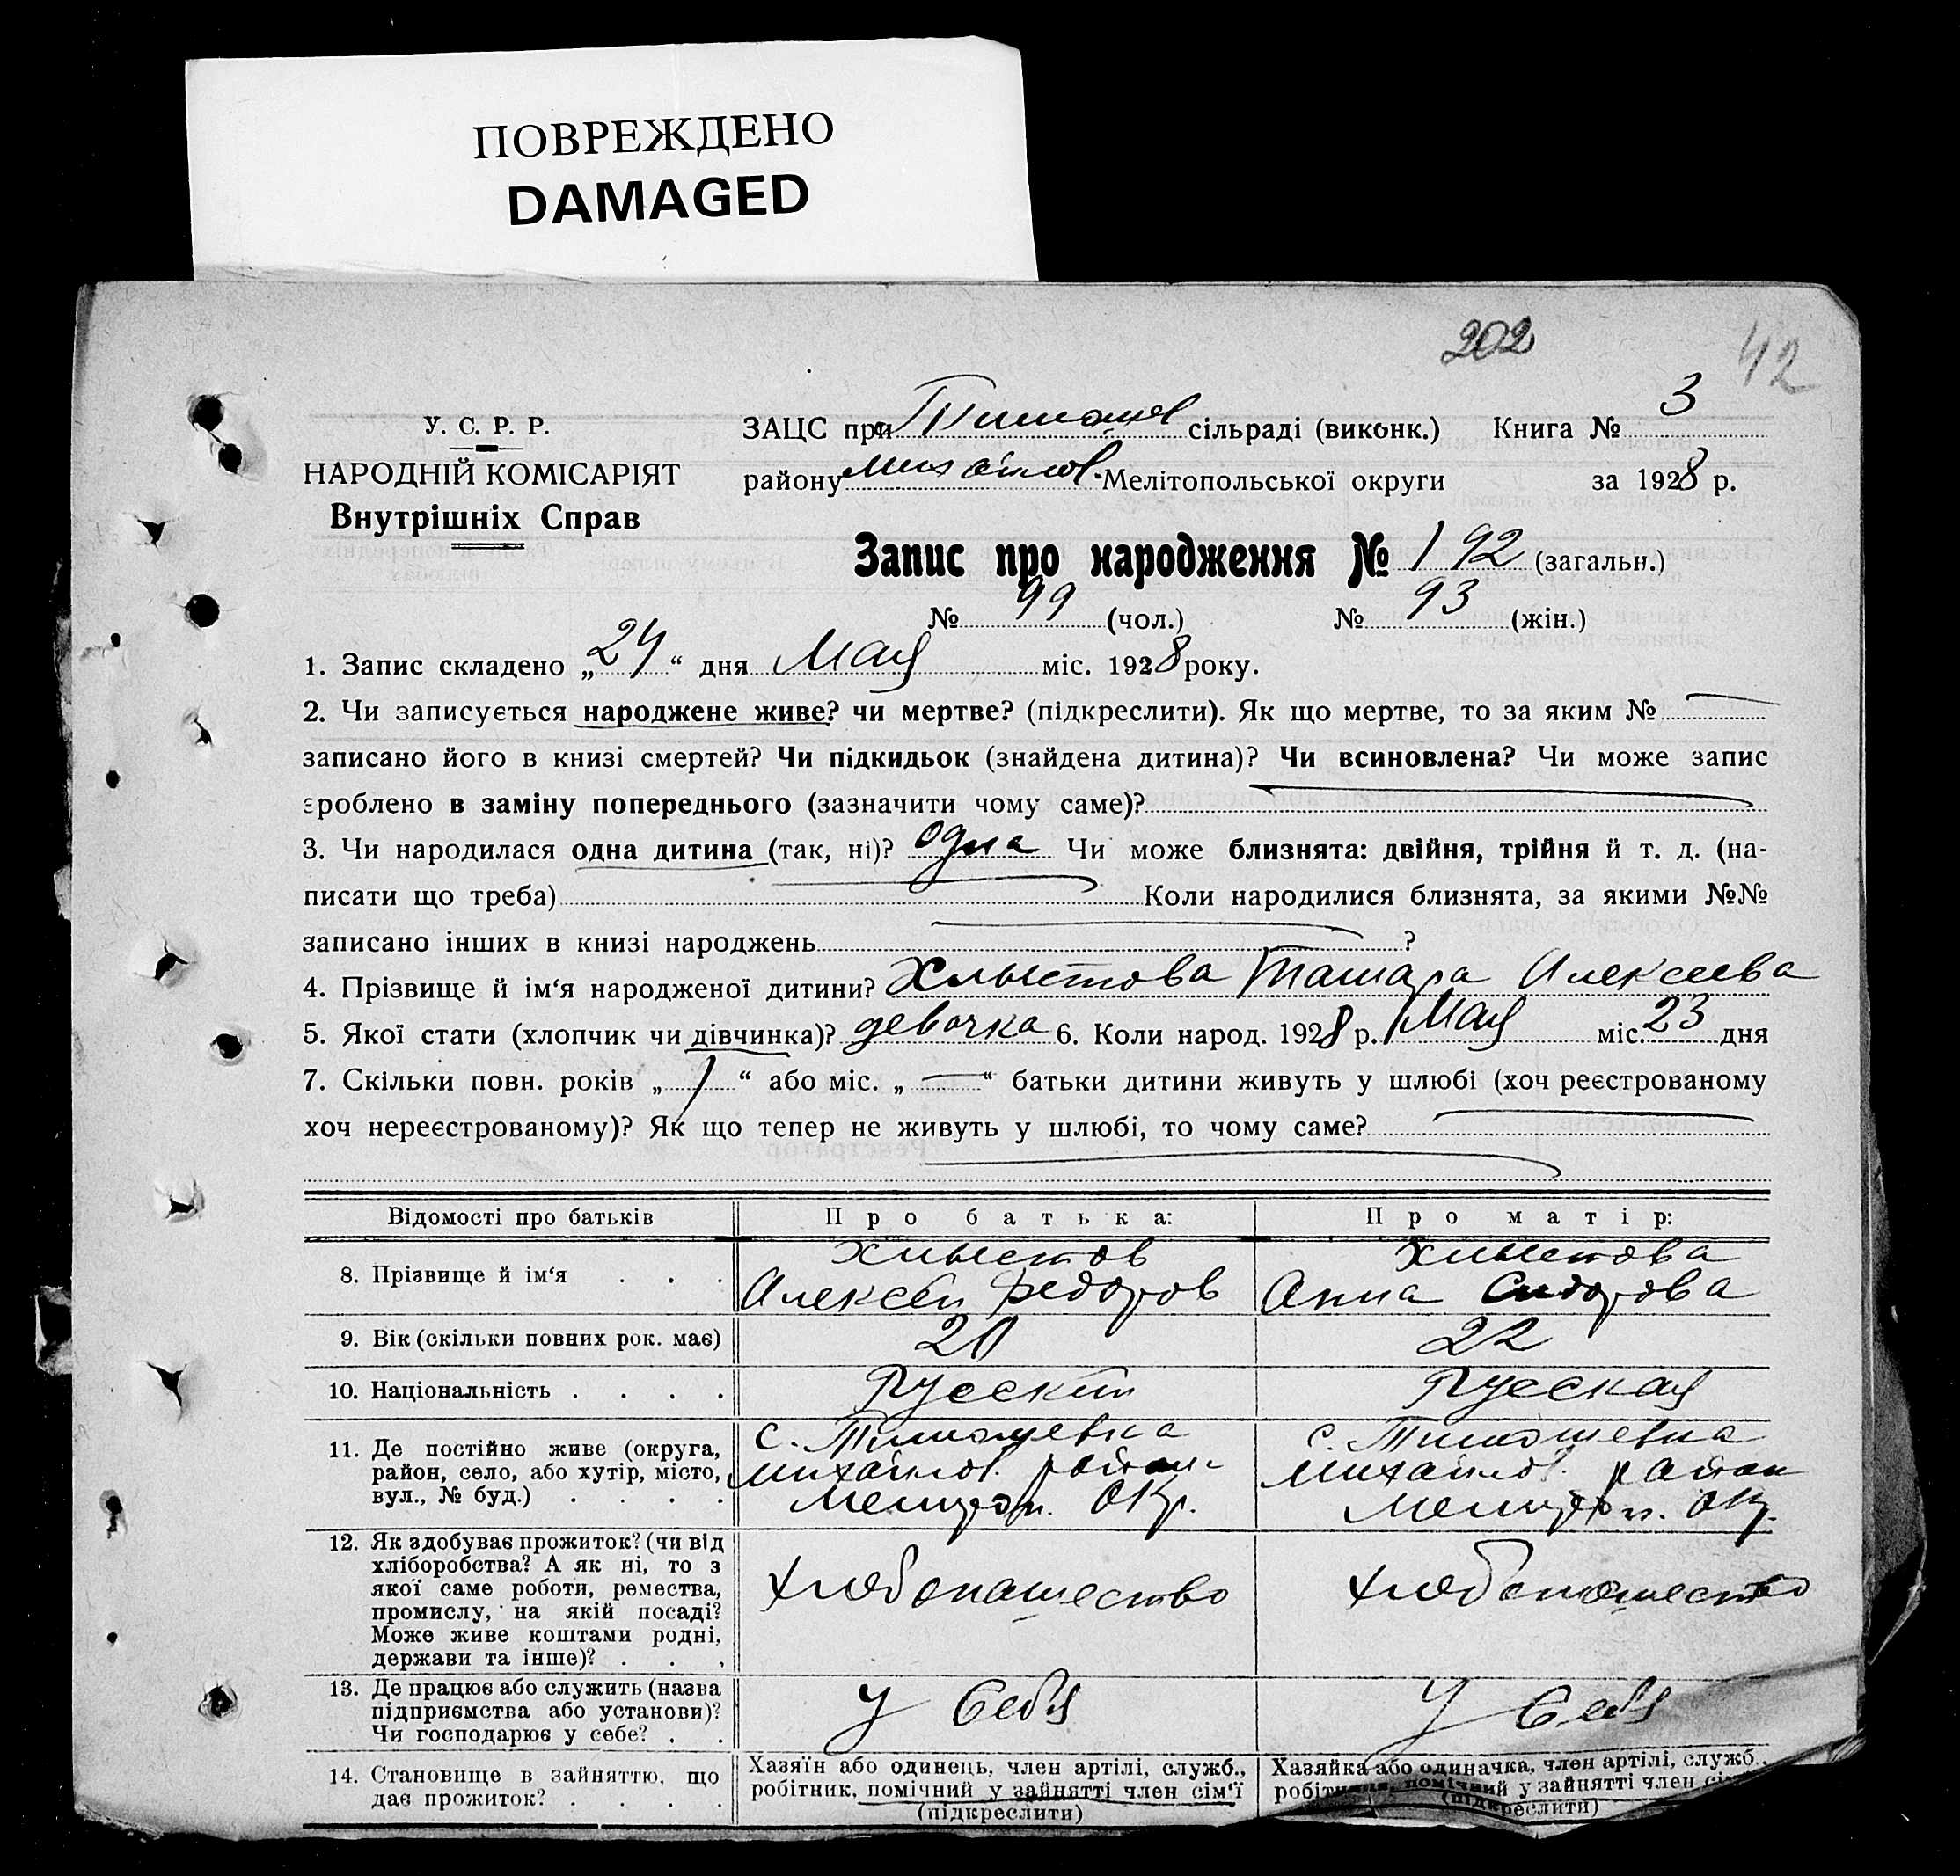 ПОВРЕЖДЕНО
DAMAGED
202
42
У. С. Р. Р.
НАРОДНІЙ КОМІСАРІЯТ
Внутрішніх Справ
ЗАЦС при Тимошев сільраді (виконк.) Книга № 3
району Михайлов. Мелітопольської округи за 1928 р.
Запис про народження № 192 (загальн.)
№ 99 (чол.) № 93 (жін.)
1. Запис складено „24“ дня Мая міс. 1928 року.
2. Чи записується народжене живе? чи мертве? (підкреслити). Як що мертве, то за яким №
записано його в книзі смертей? Чи підкидьок (знайдена дитина)? Чи всиновлена? Чи може запис
зроблено в заміну попереднього (зазначити чому саме)?
3. Чи народилася одна дитина (так, ні)? одна Чи може близнята: двійня, трійня й т. д. (на-
писати що треба) Коли народилися близнята, за якими №№
записано інших в книзі народжень ?
4. Прізвище й ім‘я народженої дитини? Хлыстова Тамара Алексеева
5. Якої стати (хлопчик чи дівчинка)? девочка 6. Коли народ. 1928 р. Мая міс. 23 дня
7. Скільки повн. років „1“ або міс. „—“ батьки дитини живуть у шлюбі (хоч реєстрованому
хоч нереєстрованому)? Як що тепер не живуть у шлюбі, то чому саме?
Відомості про батьків Про батька: Про матір:
8. Прізвище й ім‘я . . . Хлыстов Алексей Федоров Хлыстова Анна Сидорова
9. Вік (скільки повних рок. має) 20 22
10. Національність . . . . Русский Русская
11. Де постійно живе (округа,
район, село, або хутір, місто,
вул., № буд.) . . . .
с. Тимошевка
Михайлов. район
Мелитоп. Окр.
с. Тимошевка
Михайлов. район
Мелитоп. Окр.
12. Як здобуває прожиток? (чи від
хліборобства? А як ні, то з
якої саме роботи, ремества,
промислу, на якій посаді?
Може живе коштами родні,
держави та інше)? . . .
хлебопашество
хлебопашество
13. Де працює або служить (назва
підприємства або установи)?
Чи господарює у себе? . .
У Себя
У Себя
14. Становище в зайняттю, що
дає прожиток? . . . .
Хазяїн або одинець, член артілі, служб.,
робітник, помічний у зайнятті член сім‘ї
(підкреслити)
Хазяйка або одиначка, член артілі, служб.,
помічний у зайнятті член
(підкреслити)